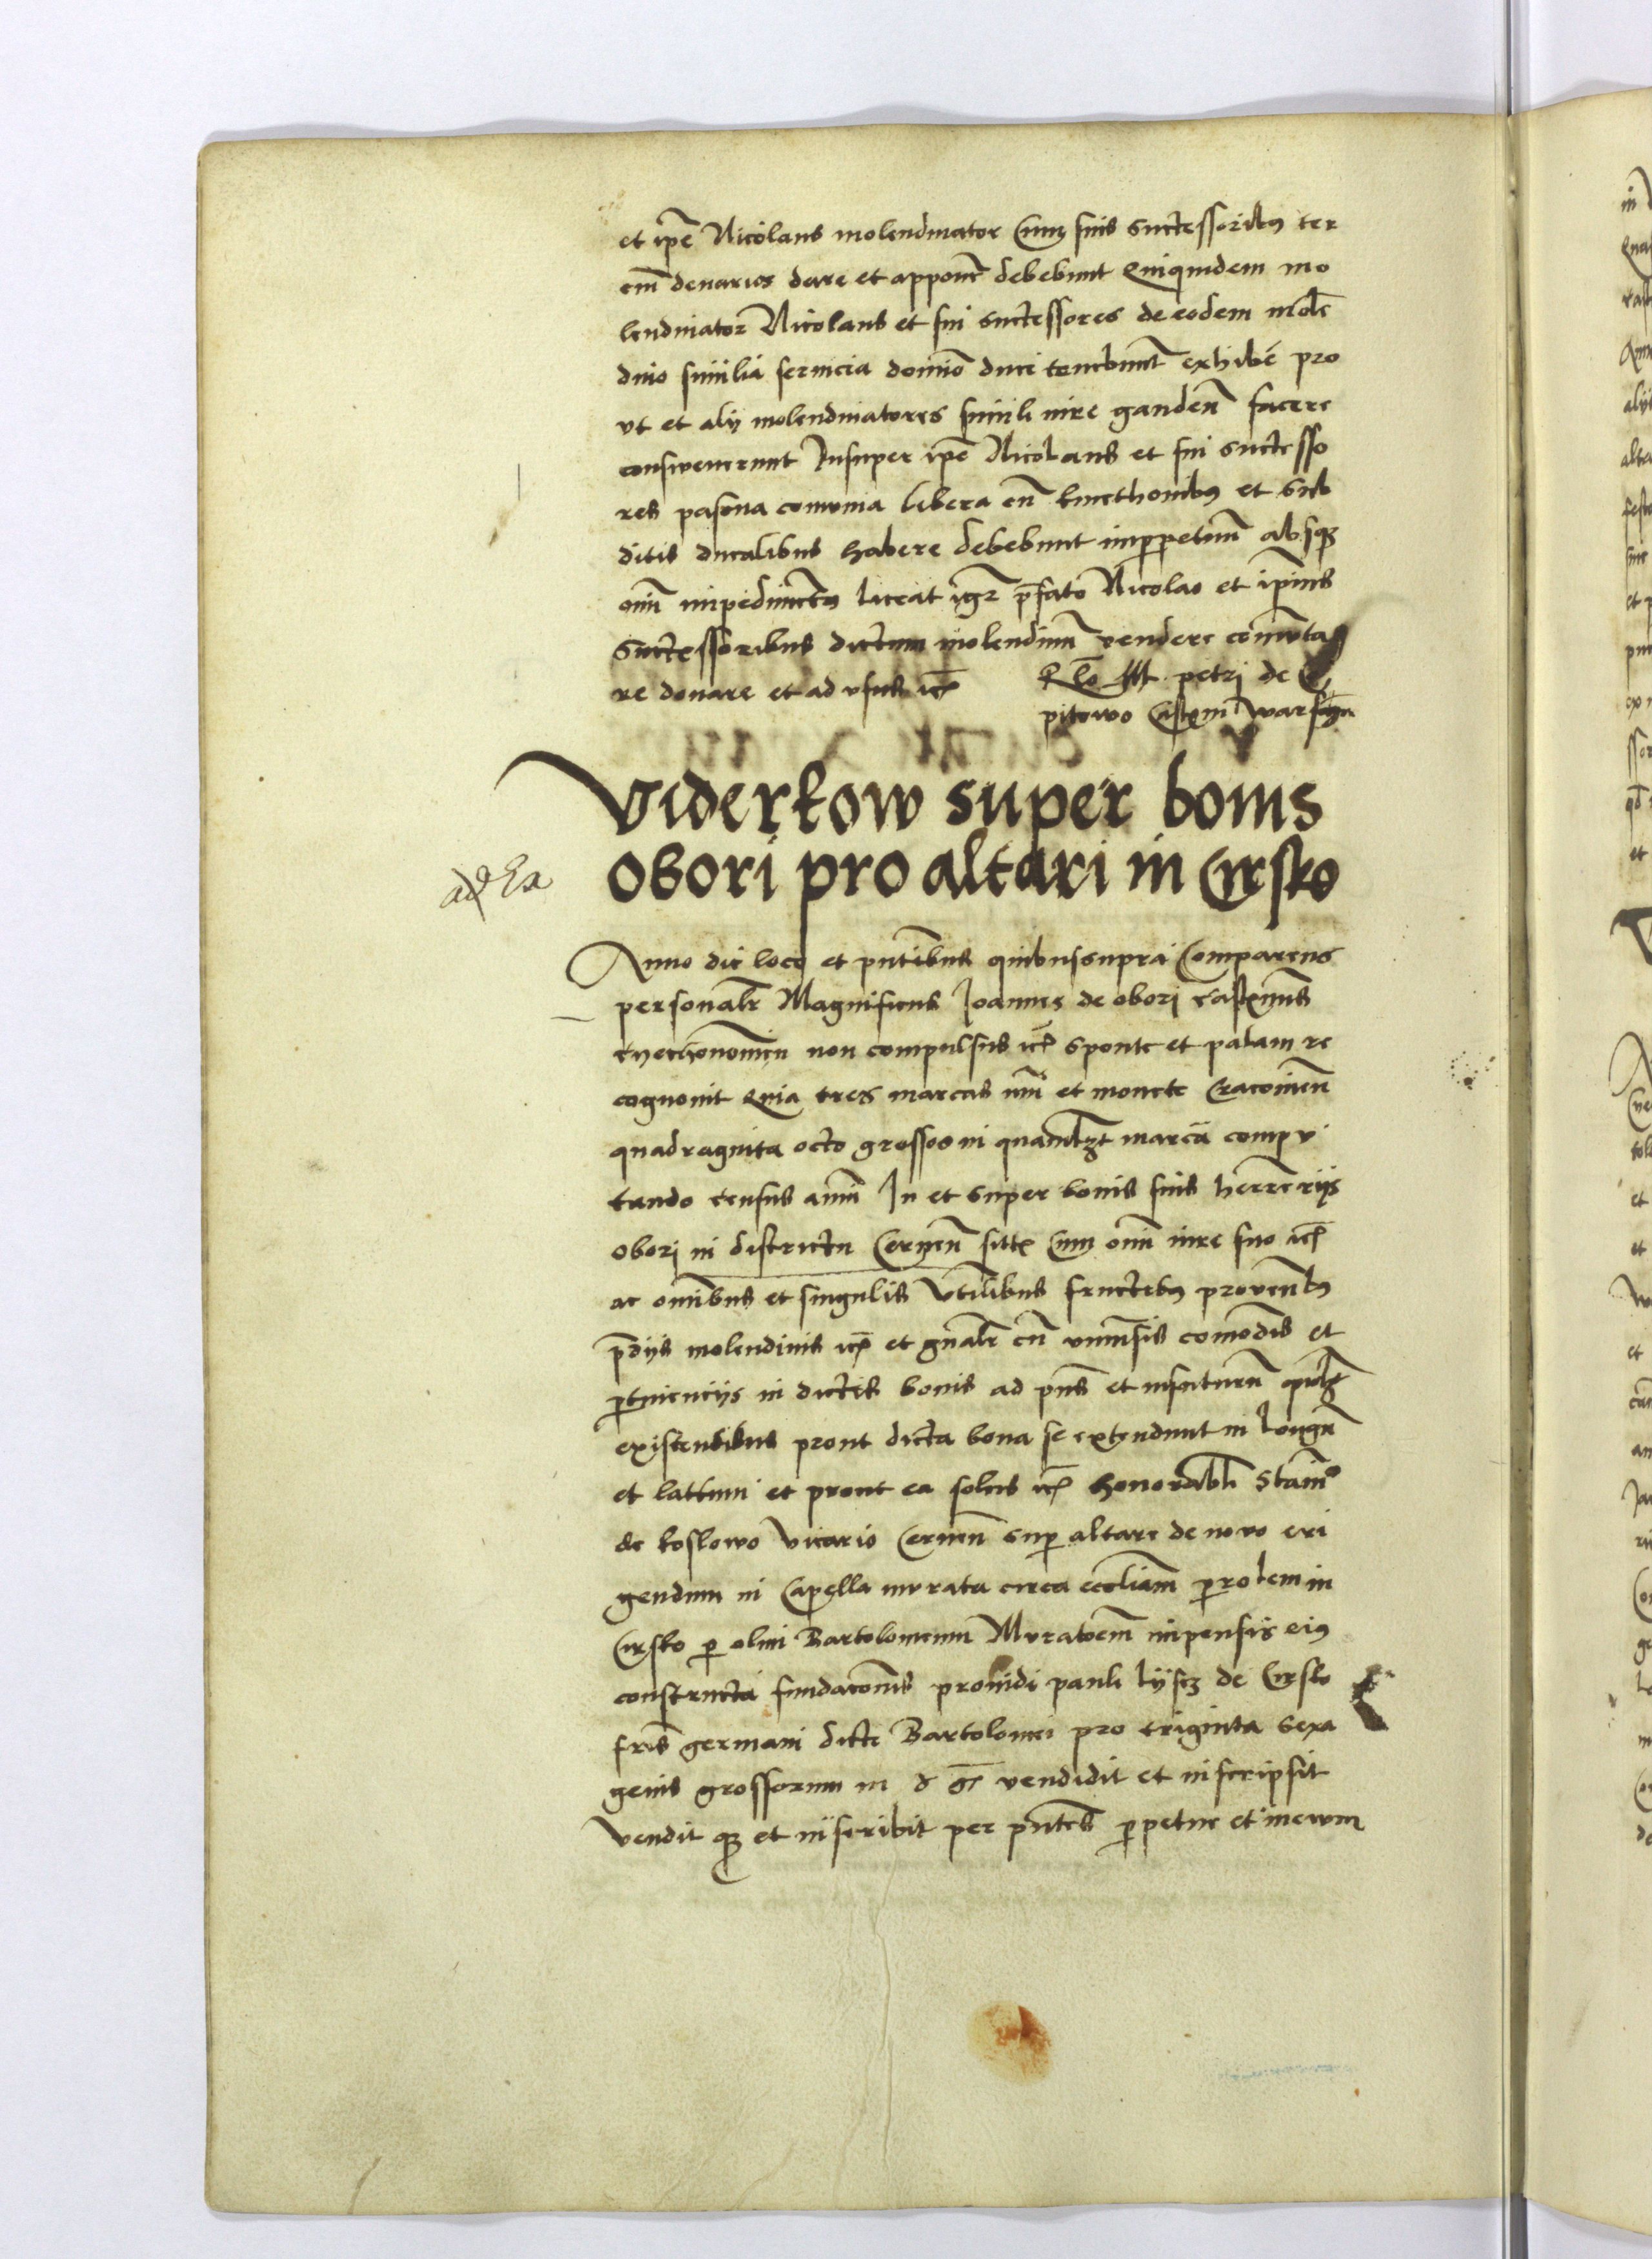 et ip̄e Nicolaus molendinator Cum suis successoribus ter
cm̄ denarios dare et apponēt debebunt Quiquidem mo
lendinator Nicolaus et sui successores de eodem molē
dino similia seruicia domino duci tenebunt̄ exhibē pro
vt et alij molendinatores simili iure gauden̄ facere
consweuerunt Insuper ip̄e Nicolaus et sui successo
res pascua comunia libera cū kmethonibus et sub
ditis ducalibus habere debebunt imp̄petuum absqz
omi impedimento Liceat igr̄ p̄fato Nicolao et ip̄ius
Successoribus dictum molendinum vendere comuta
re donare et ad vsus etc̄
Rlo M petri de C
pitowo Castellani Warschn
Viderkow super bonis
obori pro altari in Cirsko
ad Ea
Anno die loco et pn̄tibus quibussupra Comparens
personalr̄ Magnificus Joannes de obori castellanus
cyechonomien non compulsus etc̄ sponte et palam re
cognouit Quia tres marcas num̄ et monete Cracouien̄
quadraginta octo grossos in quamlz̄t marcā compu
tando census annui In et super bonis suis herreriis
obori in districtu Cernen̄ sitis Cum omni iure suo etc̄
ac om̄ibus et singulis vtilibus fructibus prouentibus
p̄dijs molendinis etc̄ et gn̄alr̄ cū vniuersis comodis et
p̄tinencijs in dictis bonis ad pn̄s et infuturum
existentibus prout dicta bona se extendunt in longum
et lattum et prout ea solus etc̄ honorabli Stanis
de koslowo vicario Cernen̄ sup̄ altare de nouo eri
gendum in Capella murata circa eccl̄iam parrolem in
Cirsko p̄ olim Bartolomeum Muratorem impensis eius
constructa fundac̄onis prouidi pauli Lysz de Cirsko
fr̄is germani dicti Bartolomei pro triginta sexa
genis grossorum m d gr̄ vendidit et inscripsit
Vendit qz et inscribit per pn̄tes p̄petue et inewm